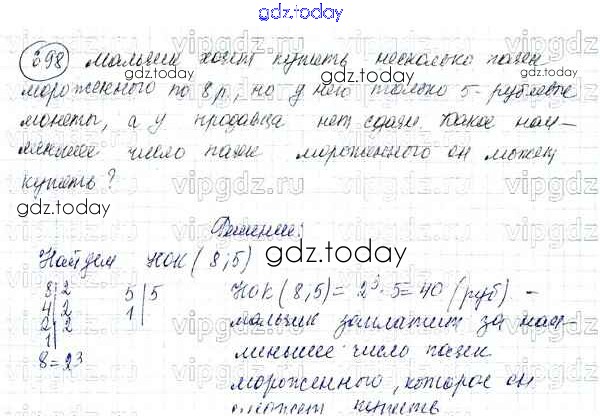 gdz.today
698 мальчик хочет купить несколько пачек
мороженного по 8 р, но у него только 5-рублевые
монеты, а у продавца нет сдачи. Какое наи-
меньшее число пачек мороженного он может
купить?
gdz.today
Решение:
Найдем НОК (8; 5)
gdz.today
8|2 5|5
4|2 1|
2|2
1|
8=2³
НОК (8,5) = 2³·5=40 (руб) -
мальчик заплатит за наи-
меньшее число пачек
мороженного, которое он
может купить
vipgdz.ru